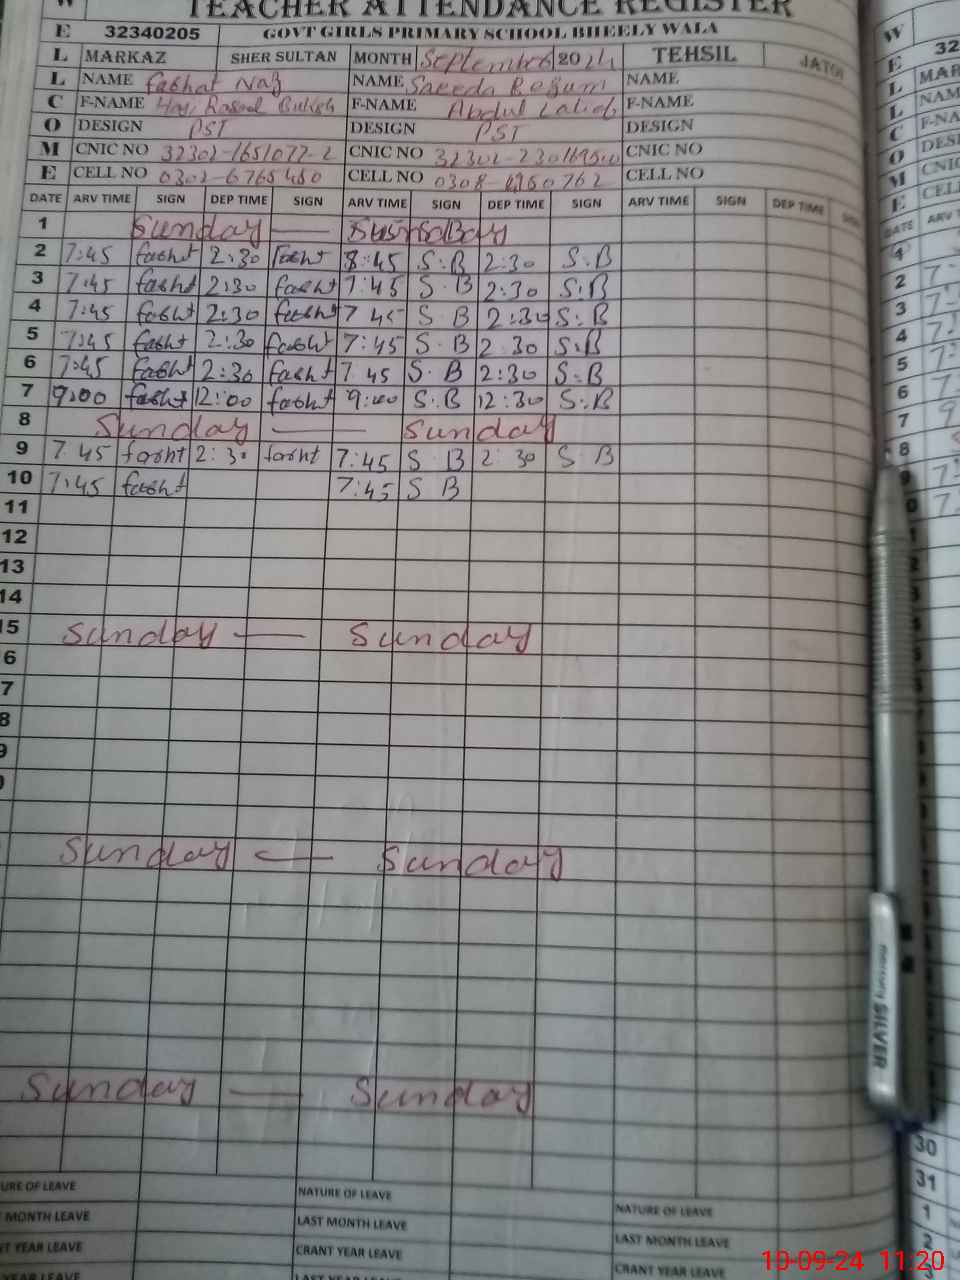 TEACHER ATTENDANCE REGISTER
E 32340205 GOVT GIRLS PRIMARY SCHOOL BHEELY WALA
L MARKAZ SHER SULTAN MONTH September 2024 TEHSIL JATOI
L NAME Naz NAME Saeeda Begum NAME
C F-NAME Rasool Bukhsh F-NAME Abdul Latif F-NAME
O DESIGN PST DESIGN PST DESIGN
M CNIC NO 32302-1651077-2 CNIC NO CNIC NO
E CELL NO CELL NO CELL NO
DATE ARV TIME SIGN DEP TIME SIGN ARV TIME SIGN DEP TIME SIGN ARV TIME SIGN DEP TIME
1 Sunday — Sunday
2 7:45 fasht 2:30 fasht 8:45 S:B 2:30 S:B
3 7:45 fasht 2:30 fasht 7:45 S B 2:30 S:B
4 7:45 fasht 2:30 fasht 7 45 S B 2:30 S:B
5 7:45 fasht 2:30 fasht 7:45 S B 2 30 S:B
6 7:45 fasht 2:30 fasht 7 45 S B 2:30 S:B
7 9:00 fasht 12:00 fasht 9:00 S:B 12:30 S:B
8 Sunday — Sunday
9 7 45 fasht 2:30 fasht 7:45 S B 2:30 S B
10 7:45 fasht 7:45 S B
11
12
13
14
15 Sunday — Sunday
6
7
8
9
Sunday — Sunday
Sunday — Sunday
NATURE OF LEAVE NATURE OF LEAVE
MONTH LEAVE LAST MONTH LEAVE LAST MONTH LEAVE
YEAR LEAVE CRANT YEAR LEAVE CRANT YEAR LEAVE
YEAR LEAVE
SILVER
30
31
1
2
10-09-24 11:20